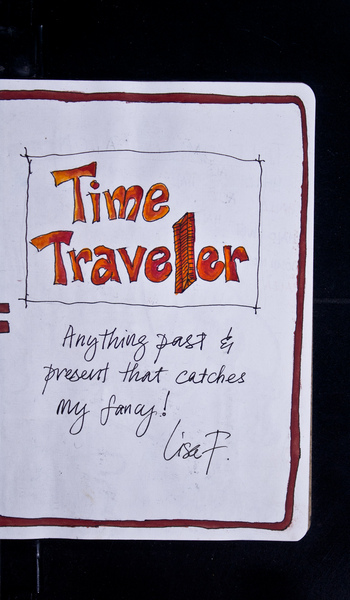 Time
Traveler
Anything past &
present that catches
my fancy!
Lisa F.